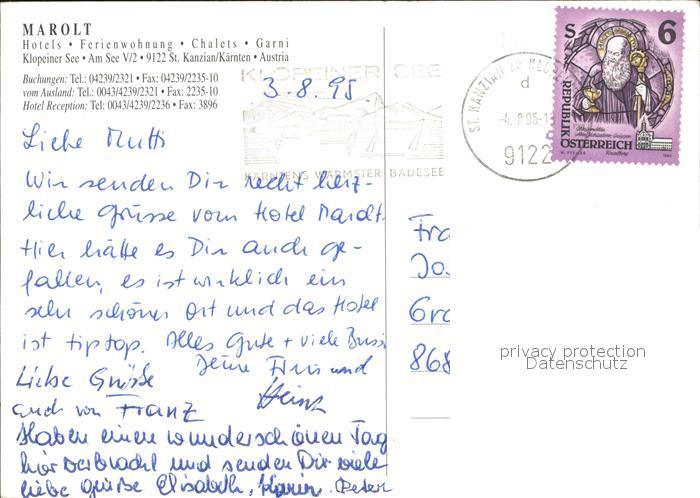 MAROLT
Hotels • Ferienwohnung • Chalets • Garni
Klopeiner See • Am See V/2 • 9122 St. Kanzian/Kärnten • Austria
Buchungen: Tel.: 04239/2321 • Fax: 04239/2235-10
vom Ausland: Tel.: 0043/4239/2321 • Fax: 2235-10
Hotel Reception: Tel.: 0043/4239/2236 • Fax: 3896
KLOPEINER SEE
3.8.95
KÄRNTENS WÄRMSTER BADESEE
ST. KANZIAN
d
9122
S 6
REPUBLIK
ÖSTERREICH
Liebe Mutti
Wir senden Dir recht herz-
liche Grüsse vom Hotel Marolt.
Hier hätte es Dir auch ge-
fallen, es ist wirklich ein
sehr schöner Ort und das Hotel
ist tiptop. Alles Gute + viele Bussi
Deine und
Heinz
Liebe Grüße
auch von Franz
Haben einen wunderschönen Tag
hier verbracht und senden Dir viele
liebe Grüße Elisabeth, Karin, Peter
Fra
Jo
Gro
868
privacy protection
Datenschutz